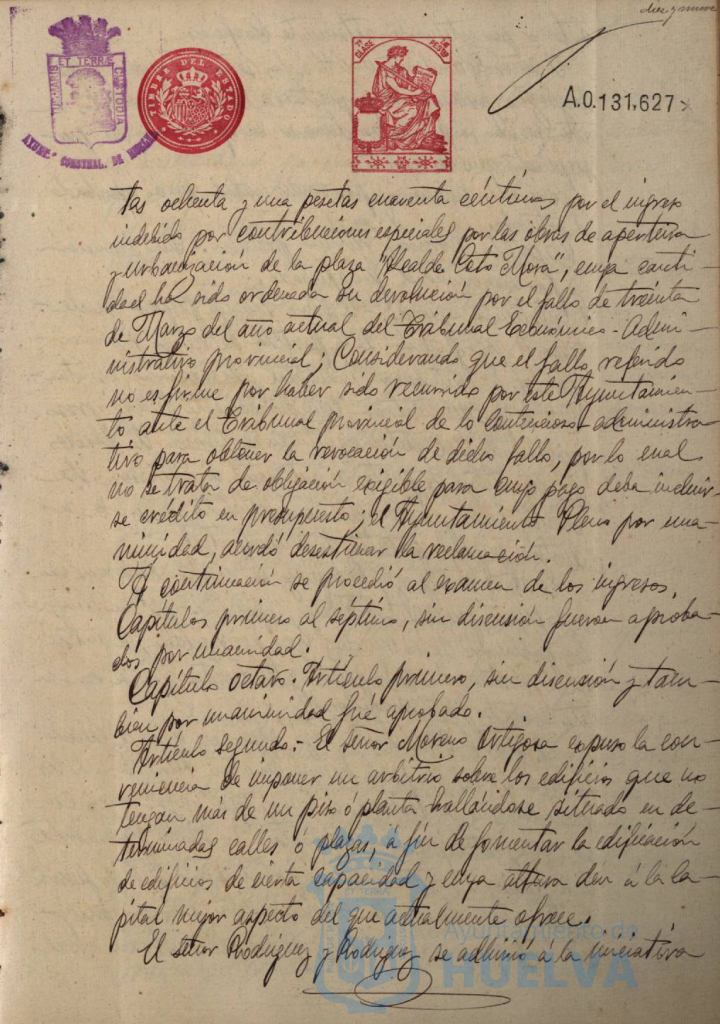 diez y nueve
PORTUS MARIS ET TERRÆ CUSTODIA
AYUNT.º CONSTNAL. DE HUELVA
TIMBRE DEL ESTADO
CLASE
PESETAS
A.0.131,627
tas ochenta y una pesetas cuarenta céntimos por el ingreso
indebido por contribuciones especiales por las obras de apertura
y urbanización de la plaza "Alcalde Coto Mora", cuya canti-
dad ha sido ordenada su devolución por el fallo de treinta
de Marzo del año actual del Tribunal Económico-Admi-
nistrativo provincial; Considerando que el fallo referido
no es firme por haber sido recurrido por este Ayuntamien-
to ante el Tribunal provincial de lo contencioso-administra-
tivo para obtener la revocación de dicho fallo, por lo cual
no se trata de obligación exigible para cuyo pago deba incluir-
se crédito en presupuesto; el Ayuntamiento Pleno por una-
nimidad, acordó desestimar la reclamación.
A continuación se procedió al examen de los ingresos.
Capítulos primero al séptimo, sin discusión fueron aproba-
dos por unanimidad.
Capítulo octavo. Artículo primero, sin discusión y tam-
bién por unanimidad fué aprobado.
Artículo segundo.- El señor Moreno Ortigosa expuso la con-
veniencia de imponer un arbitrio sobre los edificios que no
tengan más de un piso ó planta hallándose situado en de-
terminadas calles ó plazas, á fin de fomentar la edificación
de edificios de cierta capacidad y cuya altura den á la ca-
pital mejor aspecto del que actualmente ofrece.
El señor Rodríguez y Rodríguez se adhirió á la iniciativa
Ayuntamiento de
HUELVA